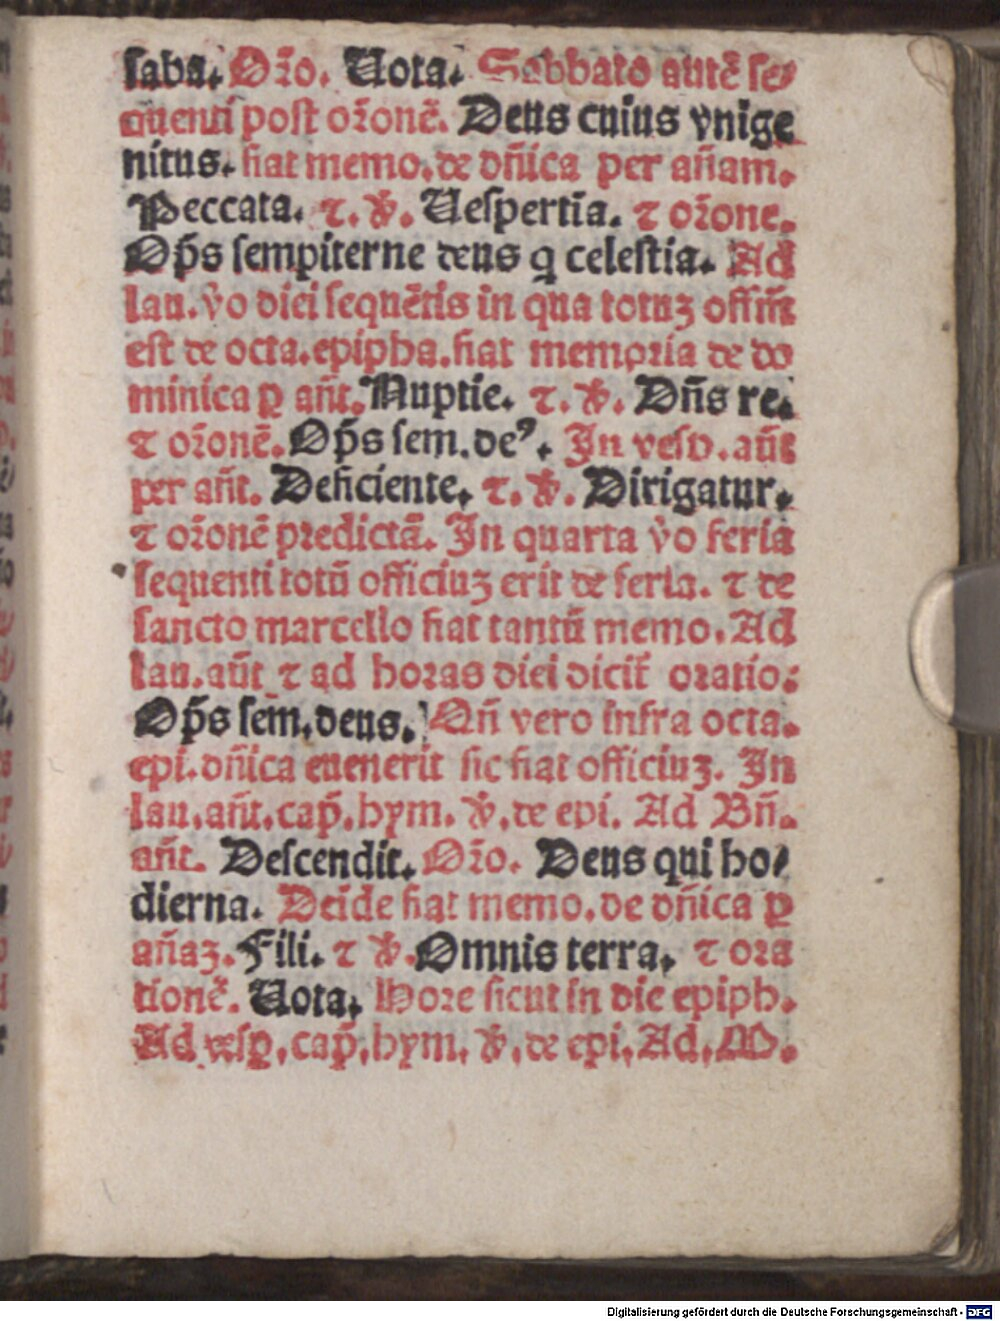 saba. Oꝛ̃o. Uota. Sabbato autẽ se⸗
quenti post oꝛonẽ. Deus cuius vnige
nitus. fiat memo. de dñica per añam.
Peccata. ⁊. ℣. Uespertĩa. ⁊ oꝛone.
Op̃s sempiterne deus q celestia. Ad
lau. v̊o diei sequẽtis in qua totuꝫ offim̃
est de octa. epipha. fiat memoꝛia de do
minica ꝑ añt. Nuptie. ⁊. ℣. Dñs re.
⁊ oꝛonẽ. Op̃s sem. deꝰ. In vesp. aut̃
per añt. Deficiente. ⁊. ℣. Dirigatur.
⁊ oꝛonẽ pꝛedictã. In quarta v̊o feria
sequenti totũ officiuꝫ erit de feria. ⁊ de
sancto marcello fiat tantũ memo. Ad
lau. aut̃ ⁊ ad hoꝛas diei dicit̃ oꝛatio:
Op̃s sem. deus. Qñ vero infra octa.
epi. dñica euenerit sic fiat officiuꝫ. In
lau. añt. cap̃. hym. ℣. de epi. Ad Bñ.
añt. Descendit. Oꝛ̃o. Deus qui ho⸗
dierna. Deĩde fiat memo. de dñica ꝑ
añaꝫ. Fili. ⁊ ℣. Omnis terra. ⁊ oꝛa
tionẽ. Uota. Hore sicut in die epiph.
Ad vesꝑ. cap̃. hym. ℣. de epi. Ad. M.
Digitalisierung gefördert durch die Deutsche Forschungsgemeinschaft - DFG